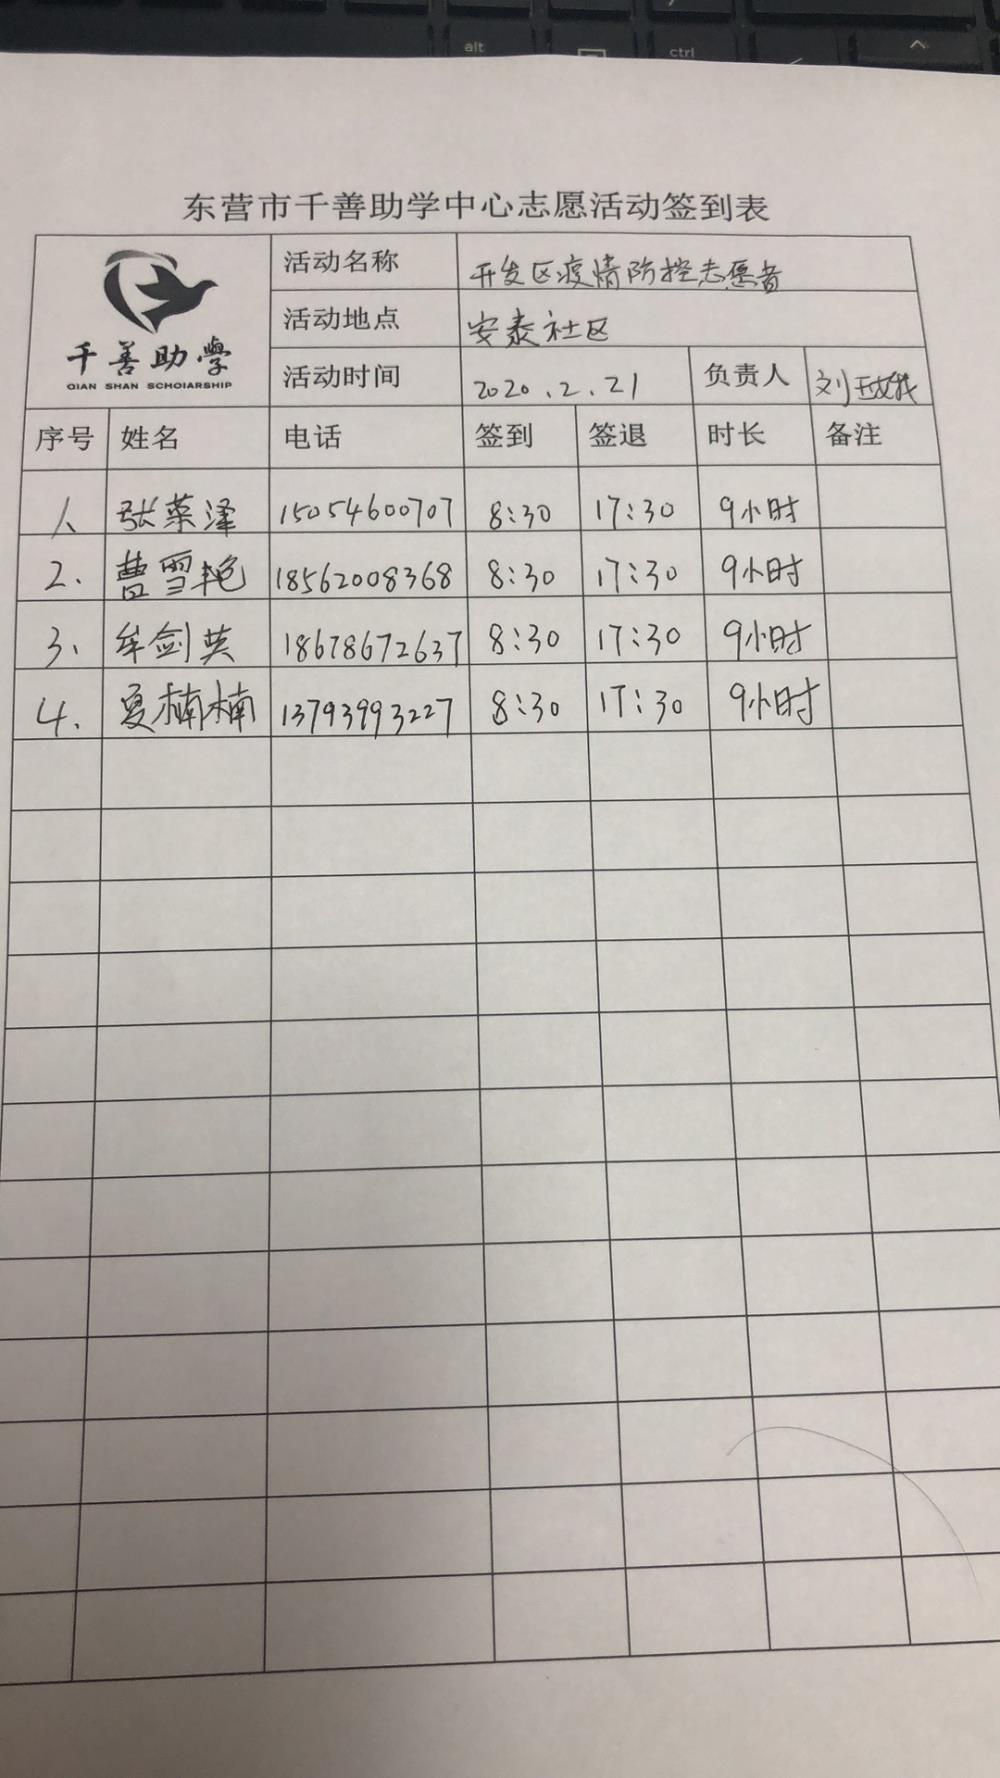 alt
ctrl
东营市千善助学中心志愿活动签到表
千善助學
QIAN SHAN SCHOIARSHIP
活动名称 开发区疫情防控志愿者
活动地点 安泰社区
活动时间 2020.2.21 负责人 刘
序号 姓名 电话 签到 签退 时长 备注
1、 张菜泽 15054600707 8:30 17:30 9小时
2、 曹雪艳 18562008368 8:30 17:30 9小时
3、 牟剑英 18678672637 8:30 17:30 9小时
4、 夏楠楠 13793993227 8:30 17:30 9小时